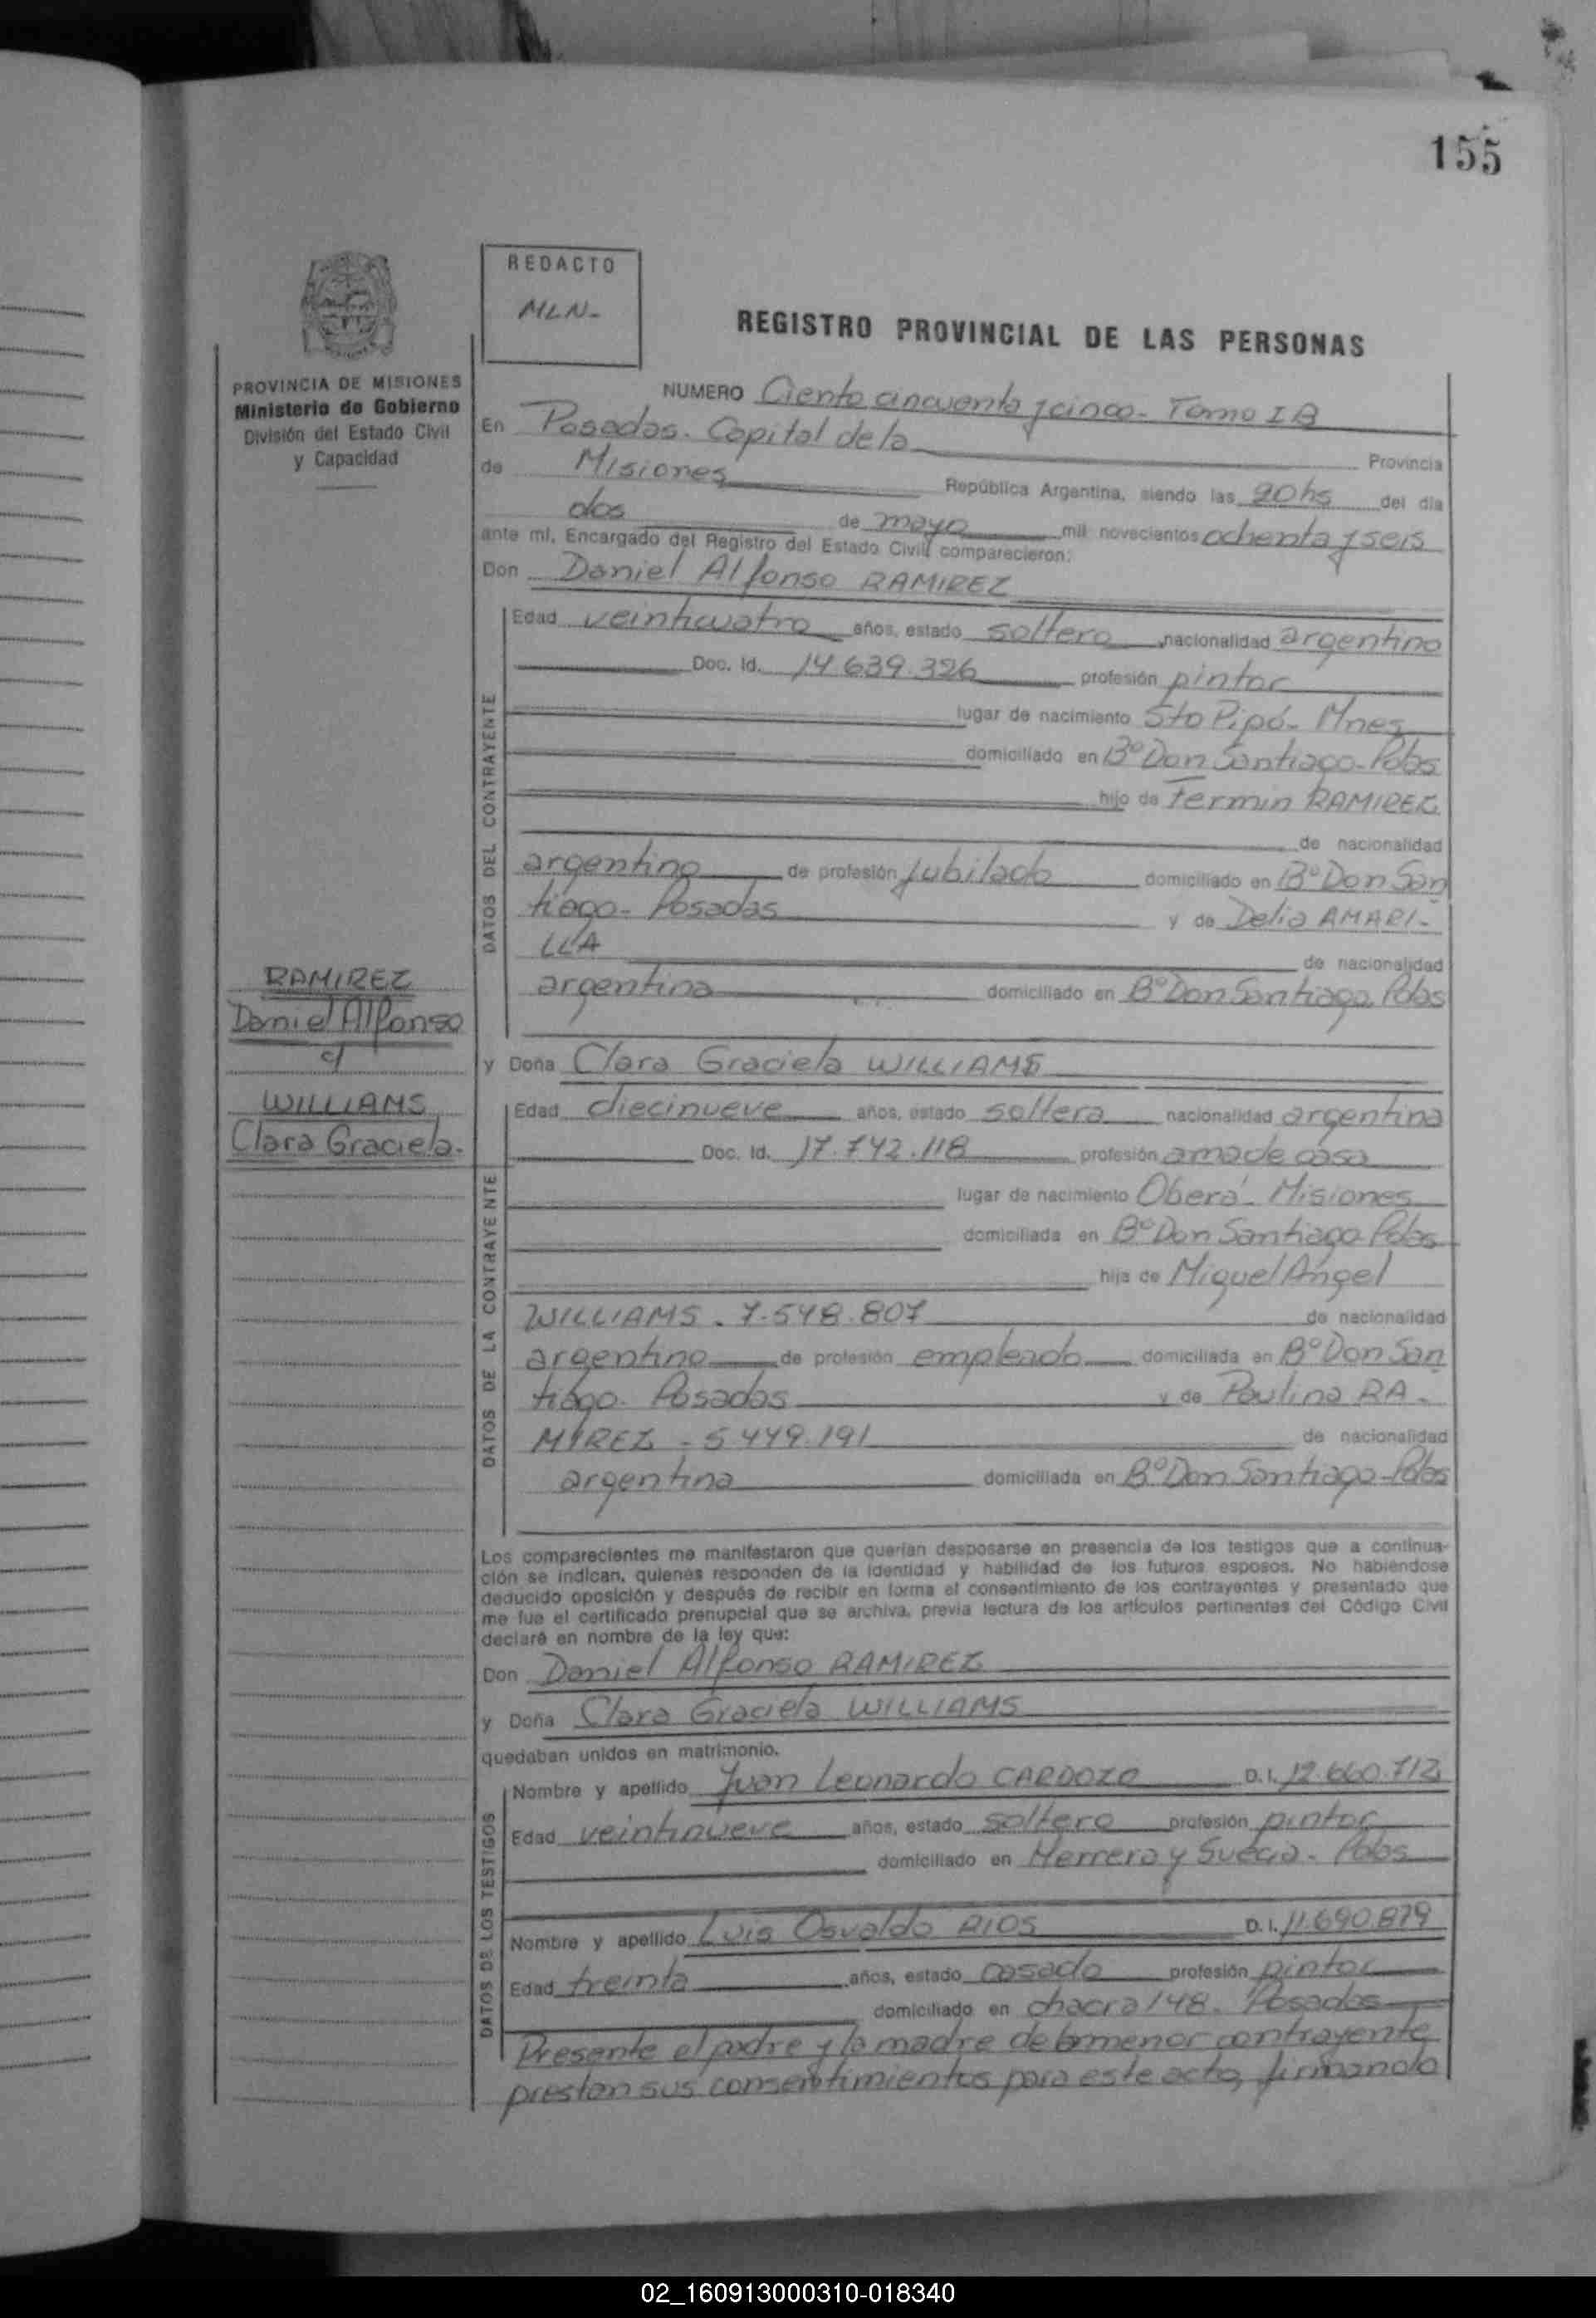 155
REDACTO
MLN-
REGISTRO PROVINCIAL DE LAS PERSONAS
PROVINCIA DE MISIONES
Ministerio de Gobierno
División del Estado Civil
y Capacidad
NUMERO Ciento cincuenta y cinco - Tomo I B
En Posadas. Capital de la Provincia
de Misiones República Argentina, siendo las 20hs del día
dos de mayo mil novecientos ochenta y seis
ante mí, Encargado del Registro del Estado Civil comparecieron:
Don Daniel Alfonso RAMIREZ
DATOS DEL CONTRAYENTE
Edad veinticuatro años, estado soltero nacionalidad argentino
Doc. Id. 14.639.326 profesión pintor
lugar de nacimiento Sto Pipó - Mnes
domiciliado en Bº Don Santiago - Pdas
hijo de Fermin RAMIREZ
de nacionalidad
argentino de profesión jubilado domiciliado en Bº Don San
tiago - Posadas y de Delia AMARI-
LLA de nacionalidad
argentina domiciliado en Bº Don Santiago Pdas
RAMIREZ
Daniel Alfonso
c/
WILLIAMS
Clara Graciela.
y Doña Clara Graciela WILLIAMS
DATOS DE LA CONTRAYENTE
Edad diecinueve años, estado soltera nacionalidad argentina
Doc. Id. 17.742.118 profesión ama de casa
lugar de nacimiento Oberá - Misiones
domiciliada en Bº Don Santiago Pdas
hija de Miguel Angel
WILLIAMS - 7.548.807 de nacionalidad
argentino de profesión empleado domiciliada en Bº Don San
tiago. Posadas y de Paulina RA-
MIREZ - 5.449.191 de nacionalidad
argentina domiciliada en Bº Don Santiago - Pdas
Los comparecientes me manifestaron que querían desposarse en presencia de los testigos que a continua-
ción se indican, quienes responden de la identidad y habilidad de los futuros esposos. No habiéndose
deducido oposición y después de recibir en forma el consentimiento de los contrayentes y presentado que
me fue el certificado prenupcial que se archiva, previa lectura de los artículos pertinentes del Código Civil
declaré en nombre de la ley que:
Don Daniel Alfonso RAMIREZ
y Doña Clara Graciela WILLIAMS
quedaban unidos en matrimonio.
DATOS DE LOS TESTIGOS
Nombre y apellido Juan Leonardo CARDOZO D.I. 12.660.712
Edad veintinueve años, estado soltero profesión pintor
domiciliado en Herrera y Suecia - Pdas
Nombre y apellido Luis Osvaldo RIOS D.I. 11.690.879
Edad treinta años, estado casado profesión pintor
domiciliado en chacra 148. Posadas
Presente el padre y la madre de la menor contrayente
prestan sus consentimientos para este acto, firmando
02_160913000310-018340